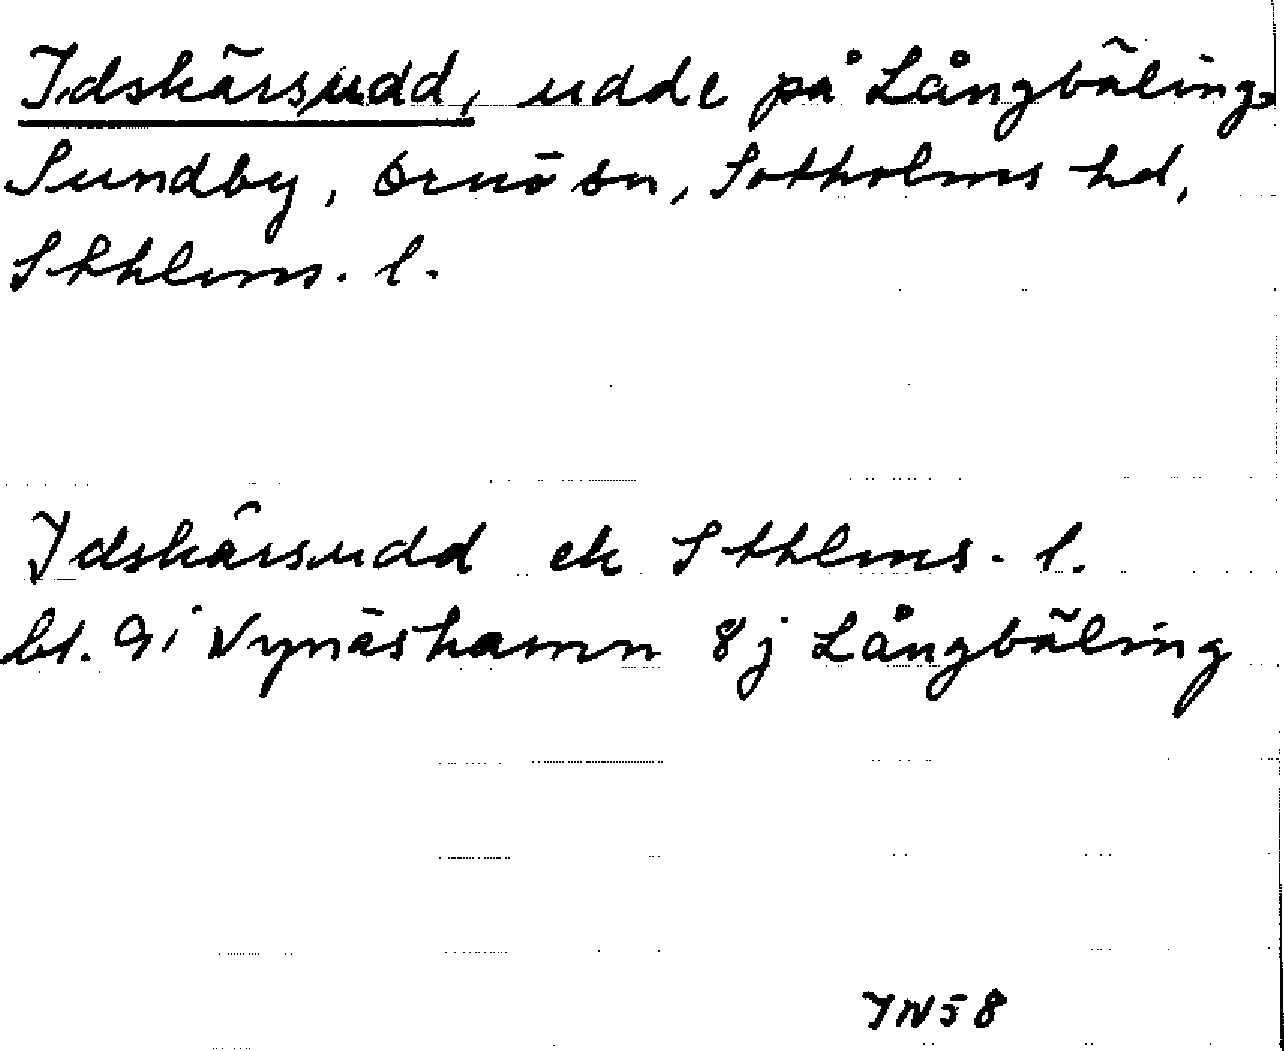 Idskärsudd, udde på Långbäling,
Sundby, Ornö sn, Sotholms hd,
Sthlms. l.
Idskärsudd ek Sthlms. l.
bl. 9i Nynäshamn 8j Långbäling
IN58